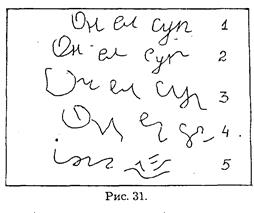 Он ел суп 1
Он ел суп 2
Он ел суп 3
Он 4
5
Рис. 31.